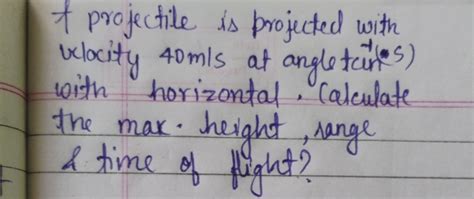 A projectile is projected with
velocity 40m/s at angle
with horizontal. Calculate
the max. height, range
& time of flight?